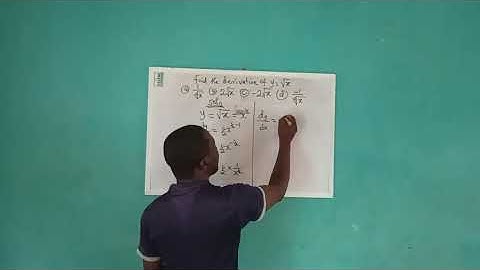 find the derivative of y = √x
(a) 1/√x (b) 2√x (c) -2√x (d) -1/√x
Soln
y = √x =
= ½x^½-1
½x^-½
½ × 1/x^½
dy/dx =